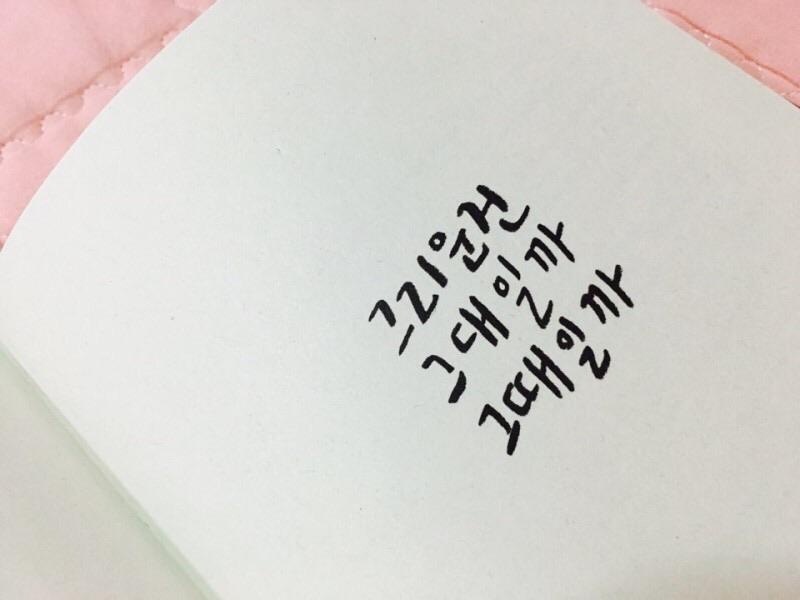 그리운건
그대일까
그때일까